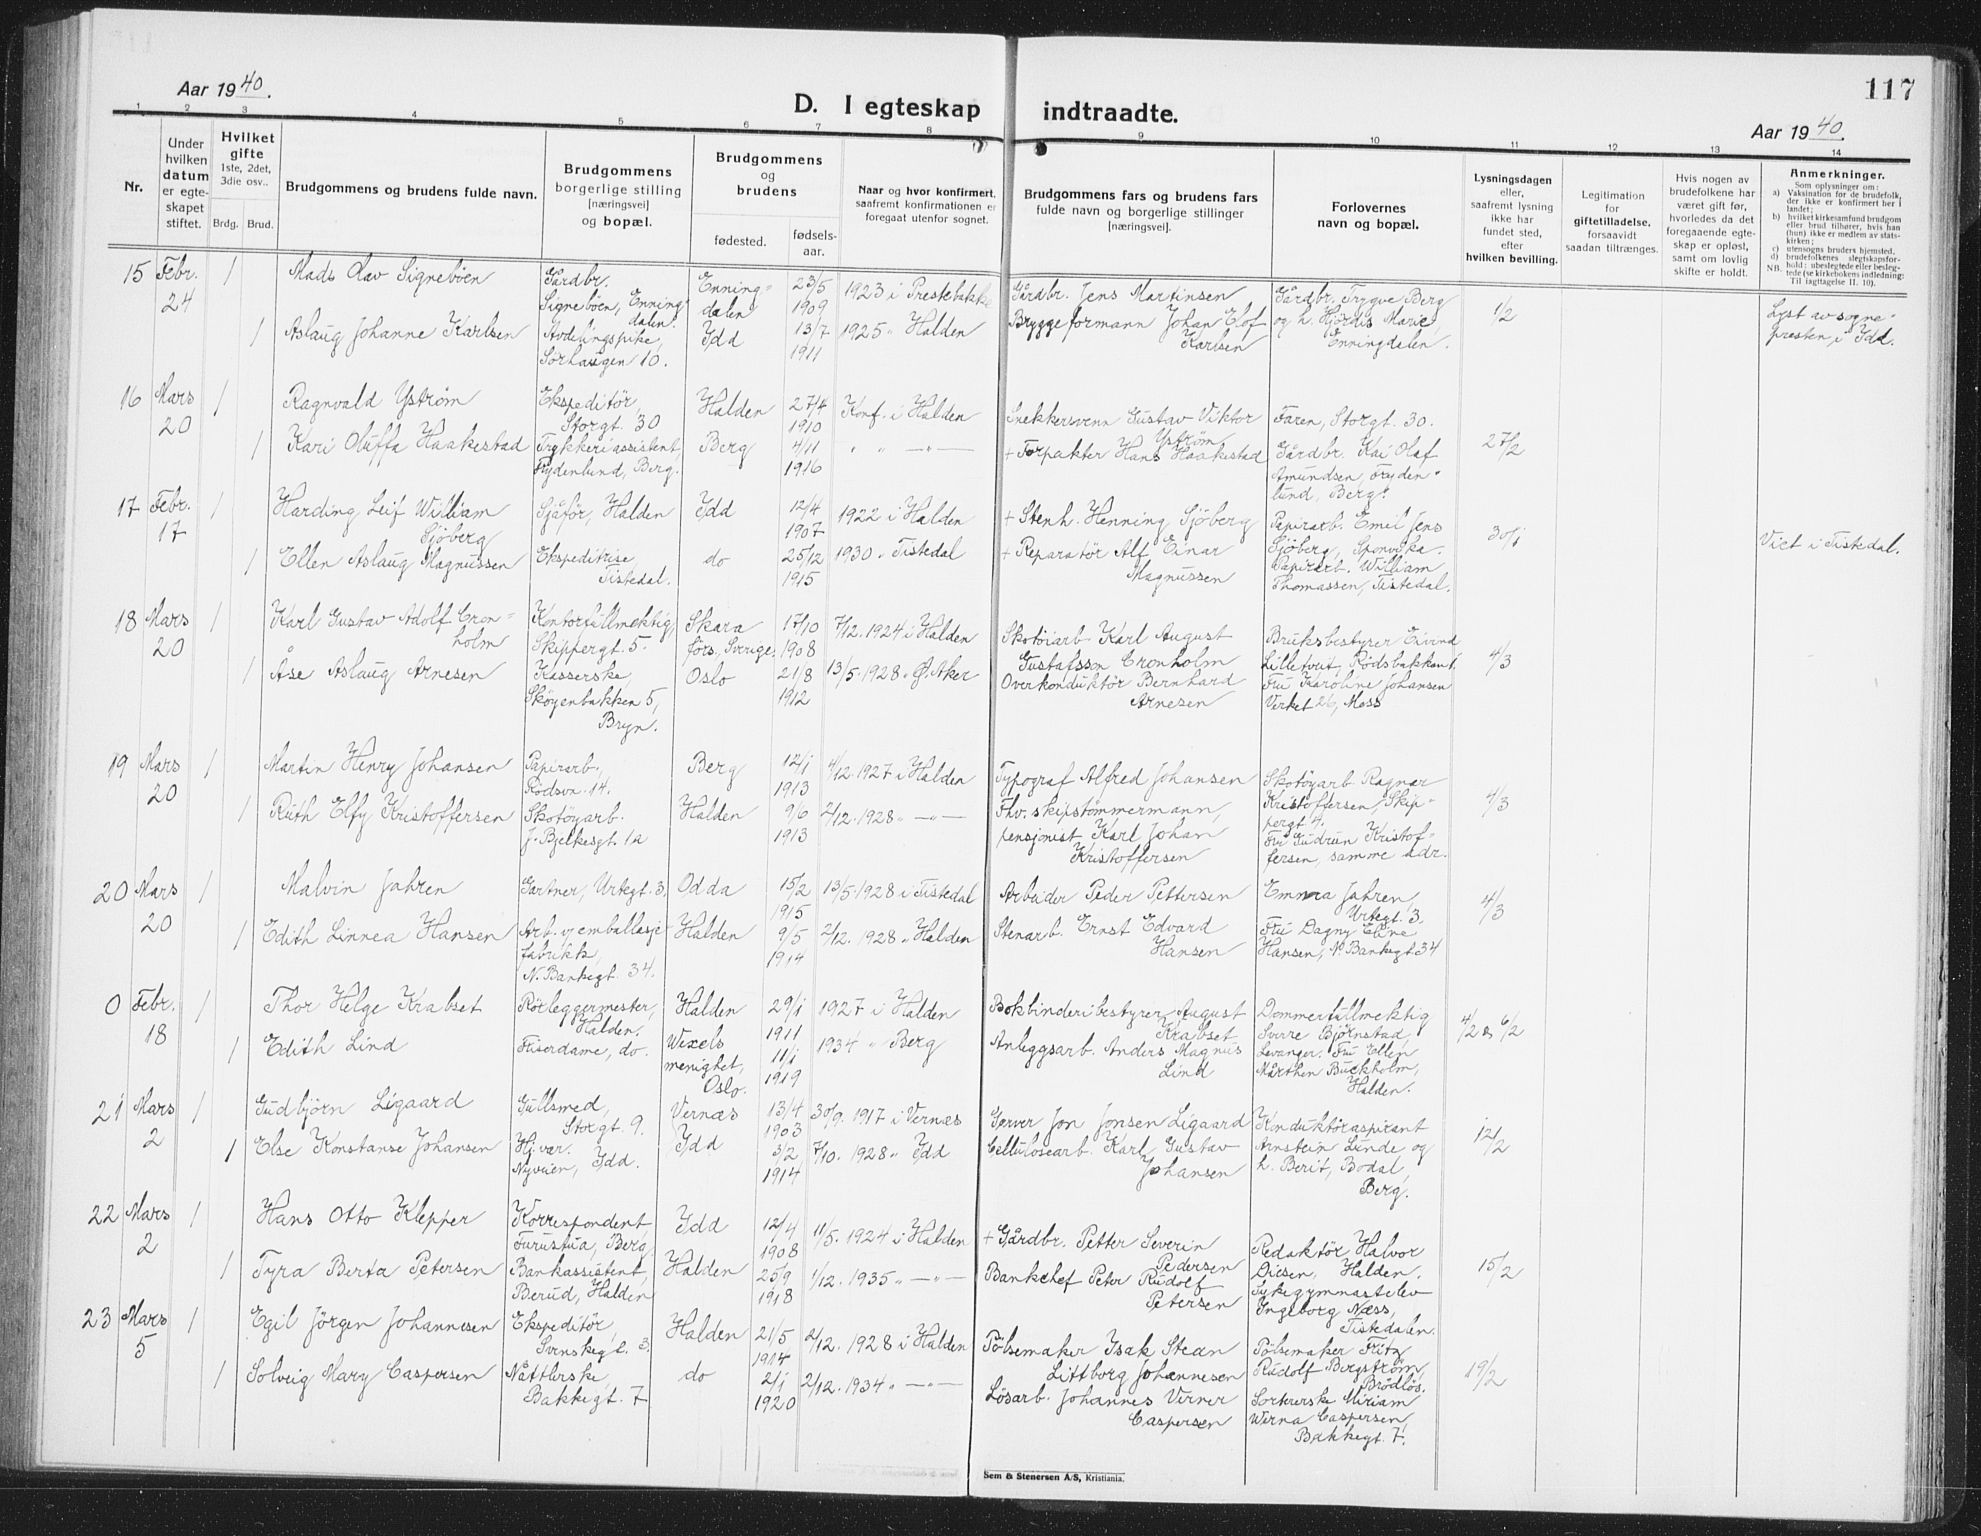 117
Aar 1940.
D. I egteskap indtraadte.
Aar 1940.
1 2 3 4 5 6 7 8 9 10 11 12 13 14
Nr.
Under hvilken datum er egteskapet stiftet.
Hvilket gifte
1ste, 2det, 3die osv..
Brdg. Brud.
Brudgommens og brudens fulde navn.
Brudgommens borgerlige stilling [næringsvei] og bopæl.
Brudgommens og brudens
fødested.
fødselsaar.
Naar og hvor konfirmert, saafremt konfirmationen er foregaat utenfor sognet.
Brudgommens fars og brudens fars fulde navn og borgerlige stillinger [næringsvei].
Forlovernes navn og bopæl.
Lysningsdagen eller, saafremt lysning ikke har fundet sted, efter hvilken bevilling.
Legitimation for giftetilladelse, forsaavidt saadan tiltrænges.
Hvis nogen av brudefolkene har været gift før, hvorledes da det foregaaende egteskap er opløst, samt om lovlig skifte er holdt.
Anmerkninger.
Som oplysninger om:
a) Vaksination for de brudefolk, der ikke er konfirmert her i landet;
b) hvilket kirkesamfund brudgom eller brud tilhører, hvis han (hun) ikke er medlem av statskirken;
c) utensogns bruders hjemsted.
d) brudefolkenes slegtskapsforhold: ubeslegtede eller beslegtede (se kirkebokens indledning:
NB. Til iagttagelse II. 10).
15 Febr. 24 1 Mads Olav Signebøen Gårdbr. Signebøen, Enningdalen. Enningdalen 23/5 1909 1923 i Prestebakke Gårdbr. Jens Martinsen Gårdbr. Trygve Berg og h. Hjørdis Marie, Enningdalen. 1/2 Lyst av sognepresten i Idd.
1 Aslaug Johanne Karlsen Avdelingspike, Sørhaugen 10. Idd 13/7 1911 1925 " Halden Bryggeformann Johan Elof Karlsen
16 Mars 20 1 Ragnvald Ystrøm Ekspeditør, Storgt. 30 Halden 27/4 1910 Konf. i Halden Snekkersvenn Gustav Viktor Ystrøm Faren, Storgt. 30. 27/2
1 Kari Oluffa Haakestad Trykkeriassistent, Frydenlund, Berg. Berg 4/11 1916 " " —"— + Forpakter Hans Haakestad Gårdbr. Kai Olaf Amundsen, Frydenlund, Berg.
17 Febr. 17 1 Harding Leif William Sjøberg Sjåfør, Halden Idd 12/4 1907 1922 i Halden + Stenh. Henning Sjøberg Papirarb. Emil Jens Sjøberg, Sponvika. 30/1 Viet i Tistedal.
1 Ellen Aslaug Magnussen Ekspeditrise, Tistedal. do 25/12 1915 1930 " Tistedal + Reparatør Alf Einar Magnussen Papirarb. William Thomassen, Tistedal.
18 Mars 20 1 Karl Gustav Adolf Cronholm Kontorfullmektig Skippergt. 5. Skara förs., Sverige. 17/10 1908 7/12. 1924 i Halden Skotøiarb. Karl August Gustafsson Cronholm Bruksbestyrer Eivind Lilletvet, Rødsbakken 4/3
1 Åse Aslaug Arnesen Kasserske, Skøyenbakken 5, Bryn. Oslo 21/8 1912 13/5. 1928 " Ø. Aker Overkonduktør Bernhard Arnesen Fru Karoline Johansen Verket 26, Moss
19 Mars 20 1 Martin Henry Johansen Papirarb. Rødsvn. 14. Berg 12/1 1913 4/12. 1927 i Halden Typograf Alfred Johansen Skotøyarb. Ragnar Kristoffersen, Skippergt 4. 4/3
1 Ruth Elfy Kristoffersen Skotøyarb. J. Bjelkesgt. 1a Halden 9/6 1913 2/12. 1928 " —"— Fhv. skipstømmermann, pensjonist Karl Johan Kristoffersen Fru Gudrun Kristoffersen, samme adr.
20 Mars 20 1 Malvin Jahren Gartner, Urtegt. 3. Odda 15/2 1915 13/5. 1928 i Tistedal Arbeider Peder Pettersen Emma Jahren, Urtegt. 3. 4/3
1 Edith Linnea Hansen Arb. v/ emballasjefabrikk, N. Bankegt. 34. Halden 9/5 1914 2/12. 1928 " Halden Stenarb. Ernst Edvard Hansen Fru Dagny Eline Hansen, N. Bankegt 34
0 Febr. 18 1 Thor Helge Krabset Rørleggermester, Halden. Halden 29/1 1911 1927 i Halden Bokbinderibestyrer August Krabset Dommerfullmektig Sverre Bjørnstad, Levanger. 4/2 & 6/2
1 Edith Lind Friserdame, do. Wexels menighet, Oslo. 11/1 1919 1934 " Berg Anleggsarb. Anders Magnus Lind Fru Ellen Mårthen Buckholm, Halden.
21 Mars 2 1 Gudbjørn Ligaard Gullsmed, Storgt. 9. Vernæs 13/4 1903 30/9. 1917 i Vernæs Garver Jon Jonsen Ligaard Konduktøraspirant Arnstein Lunde og h. Berit, Bodal, Berg. 12/2
1 Else Konstanse Johansen Hj. vær. Nyveien, Idd. Idd 3/2 1914 7/10. 1928 " Idd Cellulosearb. Karl Gustav Johansen
22 Mars 2 1 Hans Otto Klepper Korrespondent, Furustua, Berg, Idd 12/4 1908 11/5. 1924 i Halden + Gårdbr. Petter Severin Pedersen Redaktør Halvor Diesen, Halden. 15/2
1 Tyra Berta Petersen Bankassistent, Berud, Halden Halden 25/9 1918 1/12. 1935 " —"— Bankchef Peter Rudolf Petersen Sykegymnastelev Ingeborg Næss, Tistedalen.
23 Mars 5 1 Egil Jørgen Johannesen Ekspeditør, Svenskegt. 3. Halden 21/5 1914 2/12. 1928 i Halden Pølsemaker Isak Stean Littborg Johannesen Pølsemaker Fritz Rudolf Bergstrøm, Brødløs. 19/2
1 Solveig Mary Caspersen Nåtlerske, Bakkegt. 7 do 2/1 1920 2/12. 1934 " —"— Løsarb. Johannes Verner Caspersen Sortererske Miriam Werna Caspersen, Bakkegt. 7.
Sem & Stenersen A/S, Kristiania.